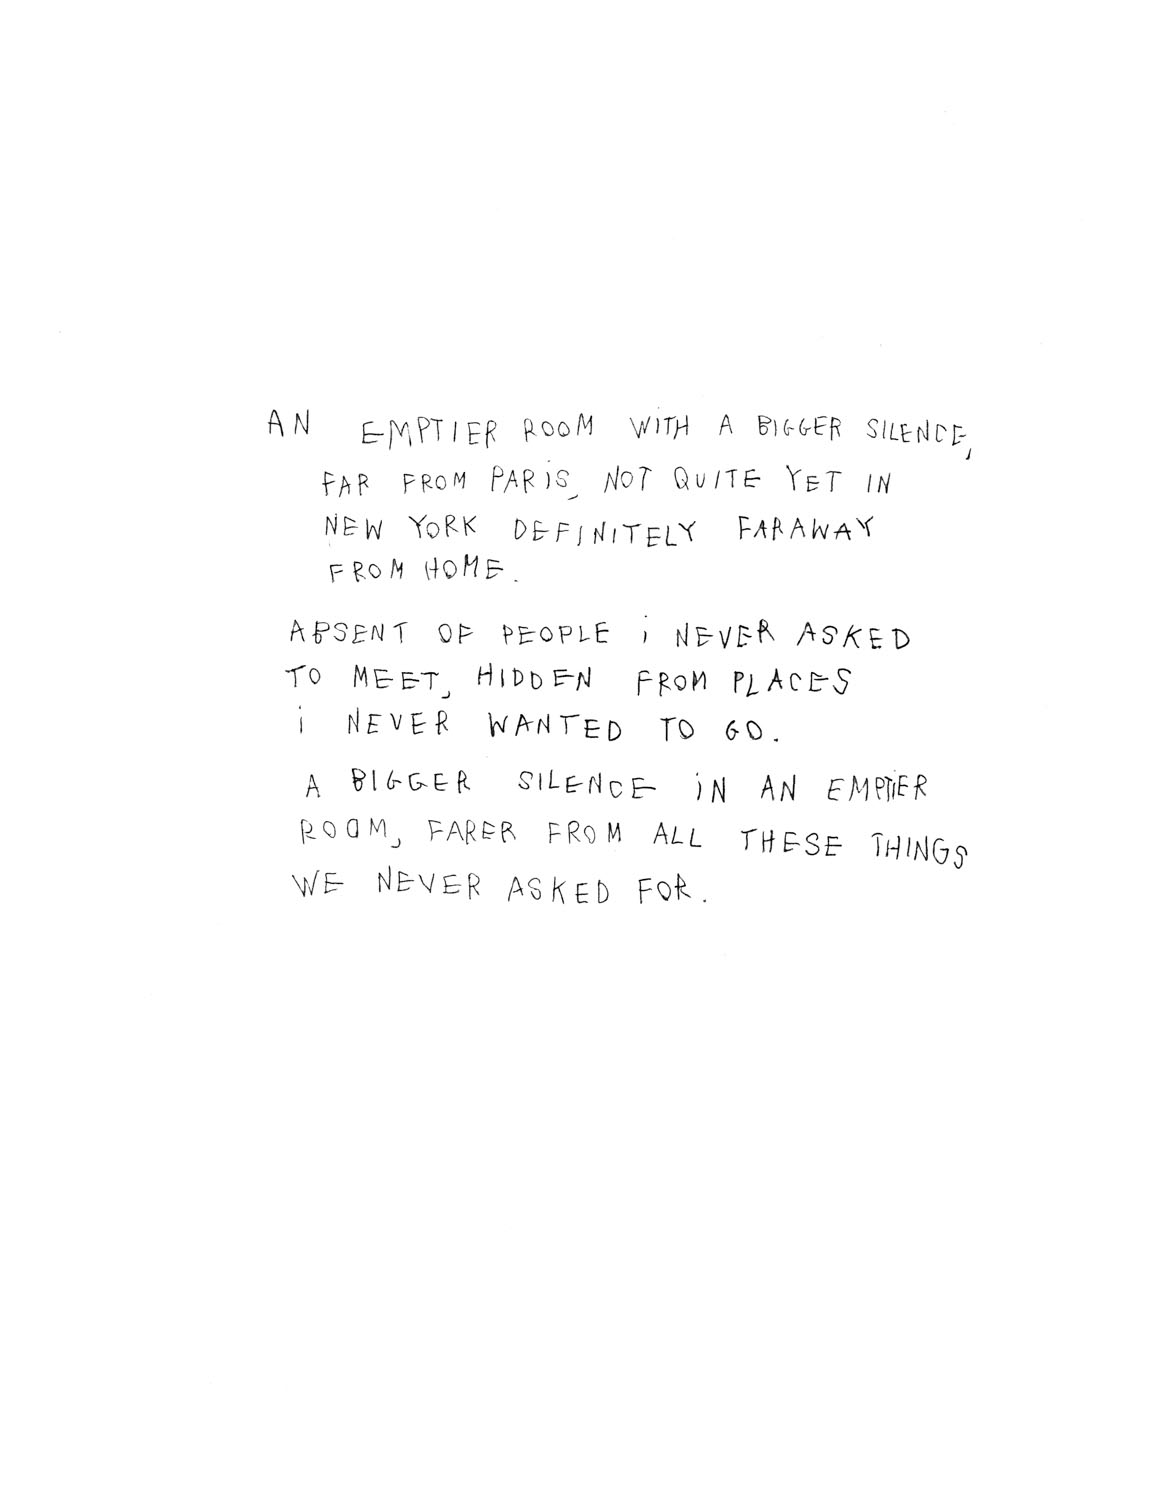 AN EMPTIER ROOM WITH A BIGGER SILENCE,
FAR FROM PARiS, NOT QUITE YET IN
NEW YORK DEFINITELY FARAWAY
FROM HOME.
ABSENT OF PEOPLE i NEVER ASKED
TO MEET, HIDDEN FROM PLACES
i NEVER WANTED TO GO.
A BIGGER SILENCE iN AN EMPTiER
ROOM, FARER FROM ALL THESE THINGS
WE NEVER ASKED FOR.